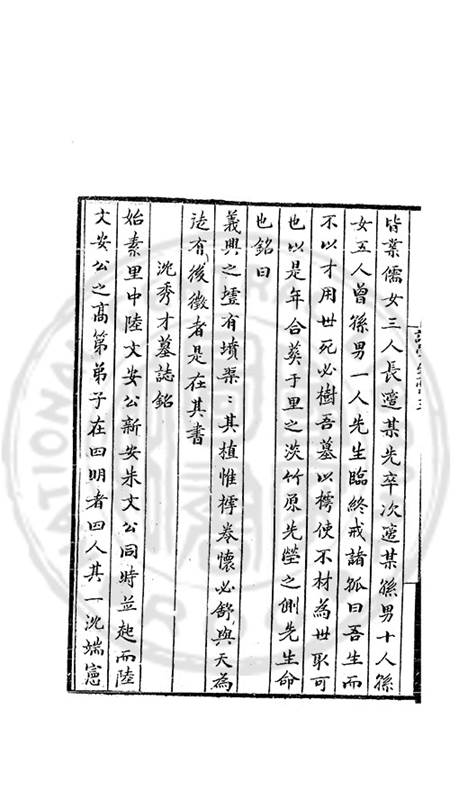 皆業儒女三人長適某先卒次適某孫男十人孫
女五人曾孫男一人先生臨終戒諸孤曰吾生而
不以才用世死必樹吾墓以樗使不材為世取可
也以是年合葬于里之淡竹原先塋之側先生命
也銘曰
義興之墟有墳渠〻其植惟樗卷懷必舒與天為
徒有後徵者是在其書
沈秀才墓誌銘
始素里中陸文安公新安朱文公同時並起而陸
文安公之高第弟子在四明者四人其一沈端憲